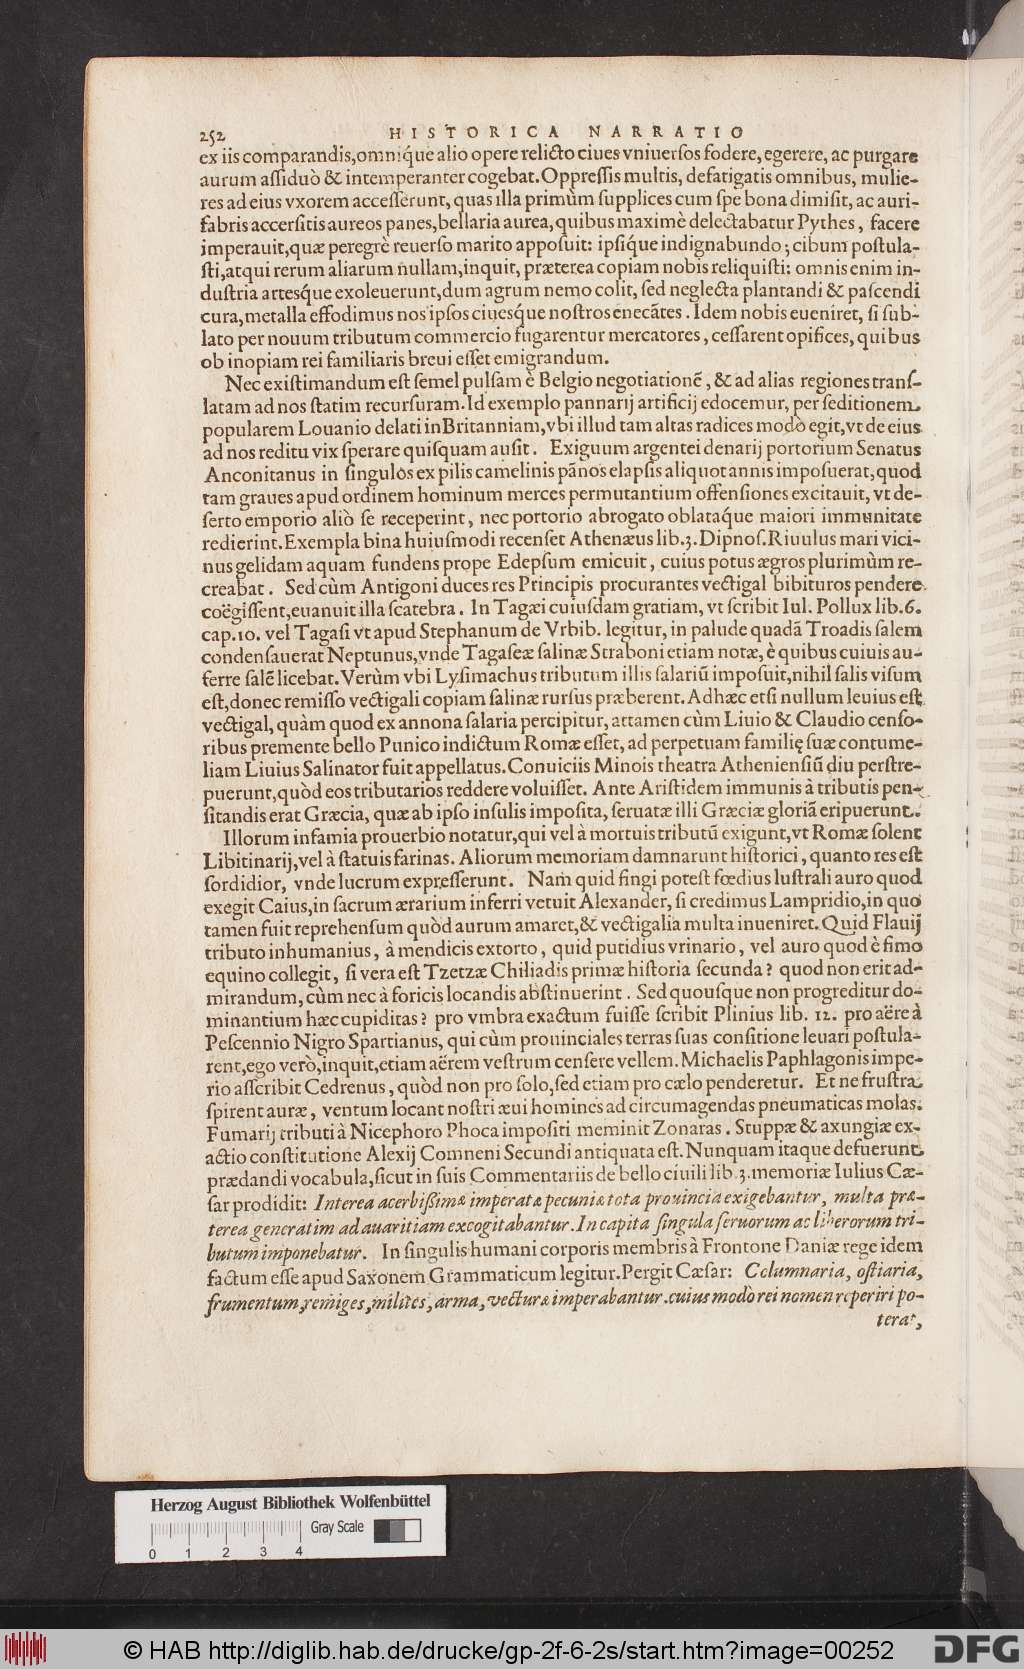 252 HISTORICA NARRATIO
ex iis comparandis, omniq́ue alio opere relicto ciues vniuersos fodere, egerere, ac purgare
aurum assiduò & intemperanter cogebat. Oppressis multis, defatigatis omnibus, mulie-
res ad eius vxorem accesserunt, quas illa primùm supplices cum spe bona dimisit, ac auri-
fabris accersitis aureos panes, bellaria aurea, quibus maximè delectabatur Pythes, facere
imperauit, quæ peregrè reuerso marito apposuit: ipsiq́ue indignabundo; cibum postula-
sti, atqui rerum aliarum nullam, inquit, præterea copiam nobis reliquisti: omnis enim in-
dustria artesq́ue exoleuerunt, dum agrum nemo colit, sed neglecta plantandi & pascendi
cura, metalla effodimus nos ipsos ciuesq́ue nostros enecãtes. Idem nobis eueniret, si sub-
lato per nouum tributum commercio fugarentur mercatores, cessarent opifices, quibus
ob inopiam rei familiaris breui esset emigrandum.
Nec existimandum est semel pulsam è Belgio negotiationẽ, & ad alias regiones trans-
latam ad nos statim recursuram. Id exemplo pannarij artificij edocemur, per seditionem
popularem Louanio delati in Britanniam, vbi illud tam altas radices modò egit, vt de eius
ad nos reditu vix sperare quisquam ausit. Exiguum argentei denarij portorium Senatus
Anconitanus in singulos ex pilis camelinis pãnos elapsis aliquot annis imposuerat, quod
tam graues apud ordinem hominum merces permutantium offensiones excitauit, vt de-
serto emporio aliò se receperint, nec portorio abrogato oblataq́ue maiori immunitate
redierint. Exempla bina huiusmodi recenset Athenæus lib. 3. Dipnos. Riuulus mari vici-
nus gelidam aquam fundens prope Edepsum emicuit, cuius potus ægros plurimùm re-
creabat. Sed cùm Antigoni duces res Principis procurantes vectigal bibituros pendere
coëgissent, euanuit illa scatebra. In Tagæi cuiusdam gratiam, vt scribit Iul. Pollux lib. 6.
cap. 10. vel Tagasi vt apud Stephanum de Vrbib. legitur, in palude quadã Troadis salem
condensauerat Neptunus, vnde Tagaseæ salinæ Straboni etiam notæ, è quibus cuiuis au-
ferre salẽ licebat. Verùm vbi Lysimachus tributum illis salariũ imposuit, nihil salis visum
est, donec remisso vectigali copiam salinæ rursus præberent. Adhæc etsi nullum leuius est
vectigal, quàm quod ex annona salaria percipitur, attamen cùm Liuio & Claudio censo-
ribus premente bello Punico indictum Romæ esset, ad perpetuam familię suæ contume-
liam Liuius Salinator fuit appellatus. Conuiciis Minois theatra Atheniensiũ diu perstre-
puerunt, quòd eos tributarios reddere voluisset. Ante Aristidem immunis à tributis pen-
sitandis erat Græcia, quæ ab ipso insulis imposita, seruatæ illi Græciæ gloriã eripuerunt.
Illorum infamia prouerbio notatur, qui vel à mortuis tributũ exigunt, vt Romæ solent
Libitinarij, vel à statuis farinas. Aliorum memoriam damnarunt historici, quanto res est
sordidior, vnde lucrum expresserunt. Nam quid fingi potest fœdius lustrali auro quod
exegit Caius, in sacrum ærarium inferri vetuit Alexander, si credimus Lampridio, in quo
tamen fuit reprehensum quòd aurum amaret, & vectigalia multa inueniret. Quid Flauij
tributo inhumanius, à mendicis extorto, quid putidius vrinario, vel auro quod è fimo
equino collegit, si vera est Tzetzæ Chiliadis primæ historia secunda? quod non erit ad-
mirandum, cùm nec à foricis locandis abstinuerint. Sed quousque non progreditur do-
minantium hæc cupiditas? pro vmbra exactum fuisse scribit Plinius lib. 12. pro aëre à
Pescennio Nigro Spartianus, qui cùm prouinciales terras suas consitione leuari postula-
rent, ego verò, inquit, etiam aërem vestrum censere vellem. Michaelis Paphlagonis impe-
rio asscribit Cedrenus, quòd non pro solo, sed etiam pro cælo penderetur. Et ne frustra
spirent auræ, ventum locant nostri æui homines ad circumagendas pneumaticas molas.
Fumarij tributi à Nicephoro Phoca impositi meminit Zonaras. Stuppæ & axungiæ ex-
actio constitutione Alexij Comneni Secundi antiquata est. Nunquam itaque defuerunt
prædandi vocabula, sicut in suis Commentariis de bello ciuili lib. 3. memoriæ Iulius Cæ-
sar prodidit: Interea acerbißimæ imperatæ pecuniæ tota prouincia exigebantur, multa præ-
terea generatim ad auaritiam excogitabantur. In capita singula seruorum ac liberorum tri-
butum imponebatur. In singulis humani corporis membris à Frontone Daniæ rege idem
factum esse apud Saxonem Grammaticum legitur. Pergit Cæsar: Columnaria, ostiaria,
frumentum, remiges, milites, arma, vecturæ imperabantur. cuius modò rei nomen reperiri po-
terat,
Herzog August Bibliothek Wolfenbüttel
Gray Scale
0 1 2 3 4
© HAB http://diglib.hab.de/drucke/gp-2f-6-2s/start.htm?image=00252
DFG